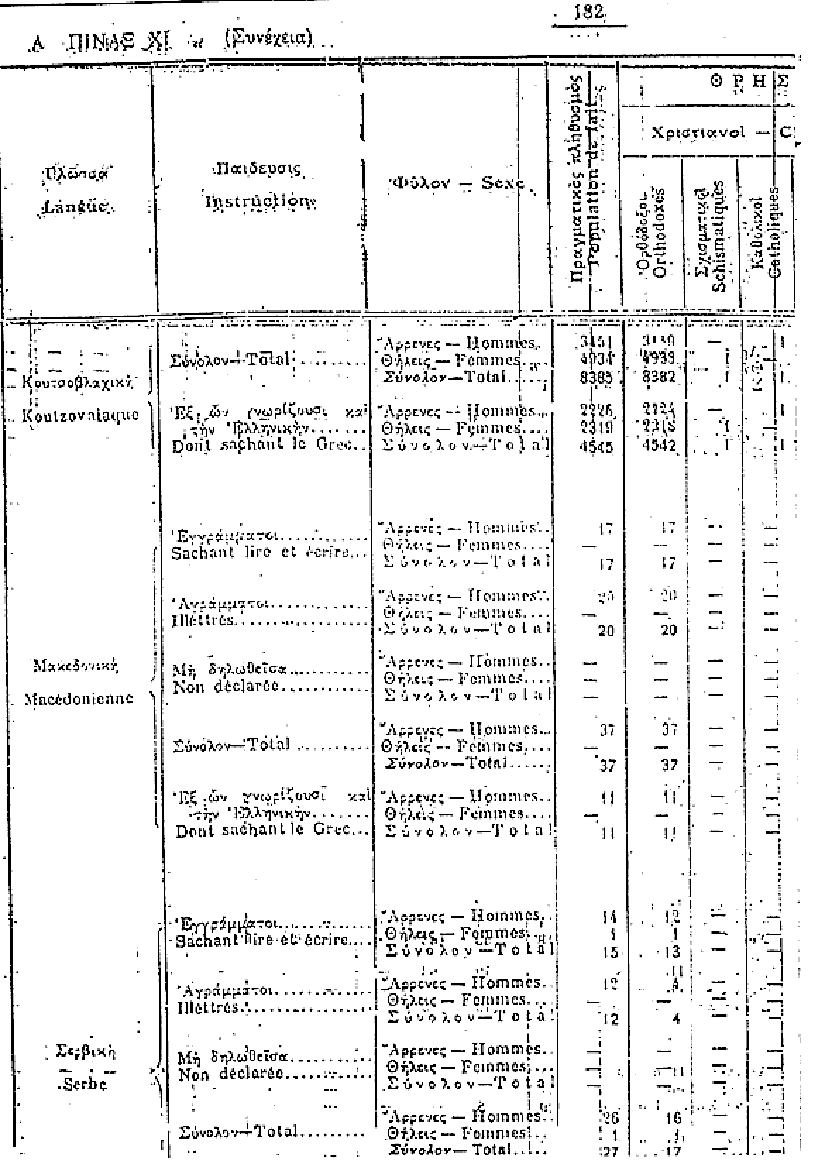 182
Α ΠΙΝΑΞ XI (Συνέχεια)
Γλῶσσα
Langue
Παίδευσις
Instruction
Φύλον — Sexe
Πραγματικὸς πληθυσμὸς
Population de fait
ΘΡΗΣ
Χριστιανοὶ — C
Ὀρθόδοξοι
Orthodoxes
Σχισματικοὶ
Schismatiques
Καθολικοὶ
Catholiques
Κουτσοβλαχικὴ
Koutzovalaque
Σύνολον—Total
Ἄρρενες — Hommes 3451 — 1
Θήλεις — Femmes 4934 4933 1
Σύνολον—Total 8385 8382 1 1
Ἐξ ὧν γνωρίζουσι καὶ
τὴν Ἑλληνικὴν
Dont sachant le Grec
Ἄρρενες — Hommes 2226 — 1
Θήλεις — Femmes 2319 2318 1
Σύνολον—Total 4545 4542 1 1
Μακεδονικὴ
Macédonienne
Ἐγγράμματοι
Sachant lire et écrire
Ἄρρενες — Hommes 17 17 —
Θήλεις — Femmes — — —
Σύνολον—Total 17 17 —
Ἀγράμματοι
Illéttrés
Ἄρρενες — Hommes 20 20 —
Θήλεις — Femmes — — —
Σύνολον—Total 20 20 —
Μὴ δηλωθεῖσα
Non déclarée
Ἄρρενες — Hommes — — —
Θήλεις — Femmes — — —
Σύνολον—Total — — —
Σύνολον—Total
Ἄρρενες — Hommes 37 37 —
Θήλεις — Femmes — — —
Σύνολον—Total 37 37 —
Ἐξ ὧν γνωρίζουσι καὶ
τὴν Ἑλληνικὴν
Dont sachant le Grec
Ἄρρενες — Hommes 11 11 —
Θήλεις — Femmes — — —
Σύνολον—Total 11 11 —
Σερβικὴ
Serbe
Ἐγγράμματοι
Sachant lire et écrire
Ἄρρενες — Hommes 14 12
Θήλεις — Femmes 1 1
Σύνολον—Total 15 13
Ἀγράμματοι
Illéttrés
Ἄρρενες — Hommes 12 4
Θήλεις — Femmes — —
Σύνολον—Total 12 4
Μὴ δηλωθεῖσα
Non déclarée
Ἄρρενες — Hommes — —
Θήλεις — Femmes — —
Σύνολον—Total — —
Σύνολον—Total
Ἄρρενες — Hommes 26 16
Θήλεις — Femmes 1 1
Σύνολον—Total 27 17